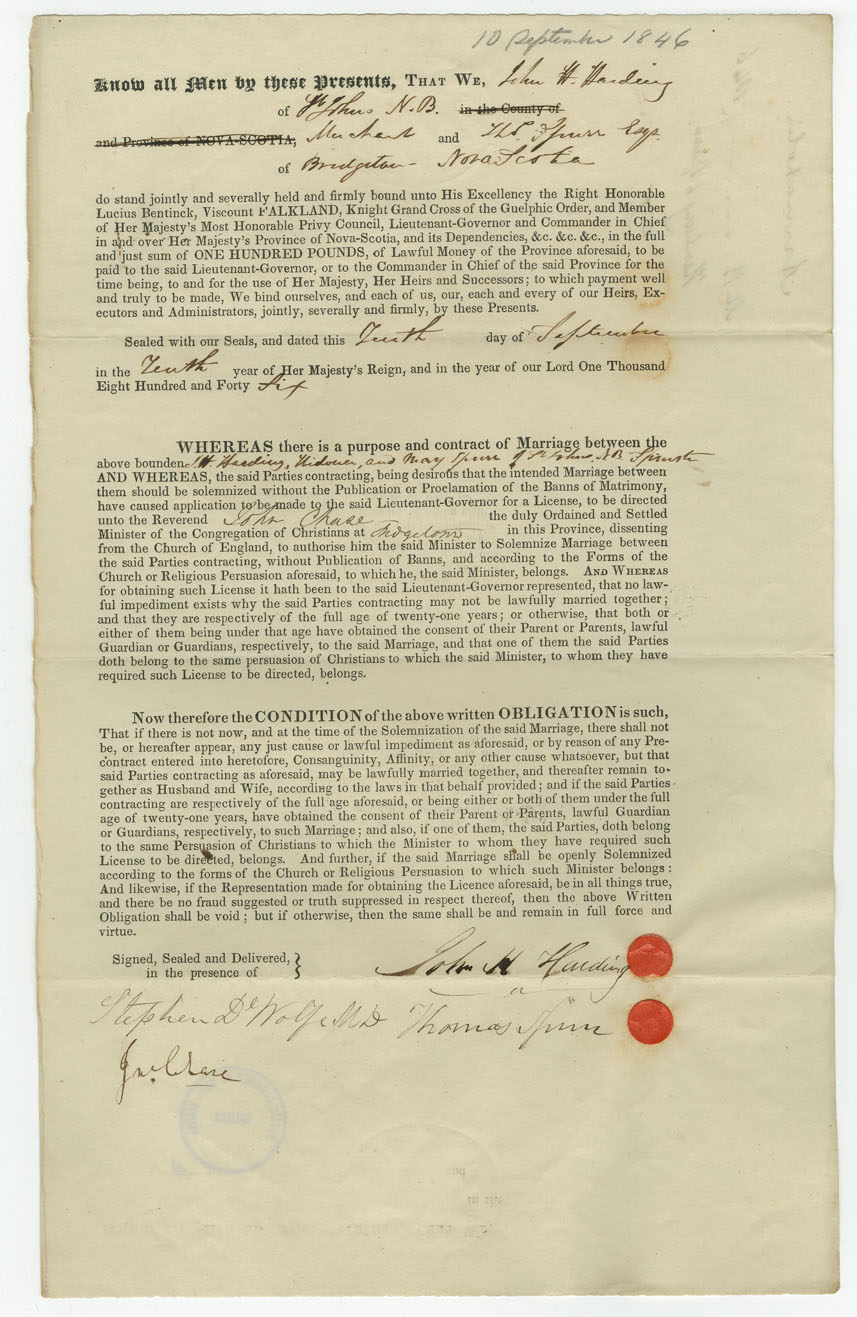 10 September 1846
Know all Men by these Presents, THAT WE, John H. Harding
of St Johns N.B. in the County of
and Province of NOVA-SCOTIA, Merchant and Thos. Spurr Esqr.
of Bridgetown Nova Scotia
do stand jointly and severally held and firmly bound unto His Excellency the Right Honorable
Lucius Bentinck, Viscount FALKLAND, Knight Grand Cross of the Guelphic Order, and Member
of Her Majesty's Most Honorable Privy Council, Lieutenant-Governor and Commander in Chief
in and over Her Majesty's Province of Nova-Scotia, and its Dependencies, &c. &c. &c., in the full
and just sum of ONE HUNDRED POUNDS, of Lawful Money of the Province aforesaid, to be
paid to the said Lieutenant-Governor, or to the Commander in Chief of the said Province for the
time being, to and for the use of Her Majesty, Her Heirs and Successors; to which payment well
and truly to be made, We bind ourselves, and each of us, our, each and every of our Heirs, Ex-
ecutors and Administrators, jointly, severally and firmly, by these Presents.
Sealed with our Seals, and dated this Tenth day of September
in the Tenth year of Her Majesty's Reign, and in the year of our Lord One Thousand
Eight Hundred and Forty Six
WHEREAS there is a purpose and contract of Marriage between the
above bounden J.H. Harding, Widower, and Mary Spurr of St Johns, N.B. Spinster
AND WHEREAS, the said Parties contracting, being desirous that the intended Marriage between
them should be solemnized without the Publication or Proclamation of the Banns of Matrimony,
have caused application to be made to the said Lieutenant-Governor for a License, to be directed
unto the Reverend John Chase the duly Ordained and Settled
Minister of the Congregation of Christians at Bridgetown in this Province, dissenting
from the Church of England, to authorise him the said Minister to Solemnize Marriage between
the said Parties contracting, without Publication of Banns, and according to the Forms of the
Church or Religious Persuasion aforesaid, to which he, the said Minister, belongs. AND WHEREAS
for obtaining such License it hath been to the said Lieutenant-Governor represented, that no law-
ful impediment exists why the said Parties contracting may not be lawfully married together;
and that they are respectively of the full age of twenty-one years; or otherwise, that both or
either of them being under that age have obtained the consent of their Parent or Parents, lawful
Guardian or Guardians, respectively, to the said Marriage, and that one of them the said Parties
doth belong to the same persuasion of Christians to which the said Minister, to whom they have
required such License to be directed, belongs.
Now therefore the CONDITION of the above written OBLIGATION is such,
That if there is not now, and at the time of the Solemnization of the said Marriage, there shall not
be, or hereafter appear, any just cause or lawful impediment as aforesaid, or by reason of any Pre-
contract entered into heretofore, Consanguinity, Affinity, or any other cause whatsoever, but that
said Parties contracting as aforesaid, may be lawfully married together, and thereafter remain to-
gether as Husband and Wife, according to the laws in that behalf provided; and if the said Parties
contracting are respectively of the full age aforesaid, or being either or both of them under the full
age of twenty-one years, have obtained the consent of their Parent or Parents, lawful Guardian
or Guardians, respectively, to such Marriage; and also, if one of them, the said Parties, doth belong
to the same Persuasion of Christians to which the Minister to whom they have required such
License to be directed, belongs. And further, if the said Marriage shall be openly Solemnized
according to the forms of the Church or Religious Persuasion to which such Minister belongs:
And likewise, if the Representation made for obtaining the Licence aforesaid, be in all things true,
and there be no fraud suggested or truth suppressed in respect thereof, then the above Written
Obligation shall be void; but if otherwise, then the same shall be and remain in full force and
virtue.
Signed, Sealed and Delivered,
in the presence of
John H Harding
Stephen De Wolfe MD Thomas Spurr
Jno. Chase